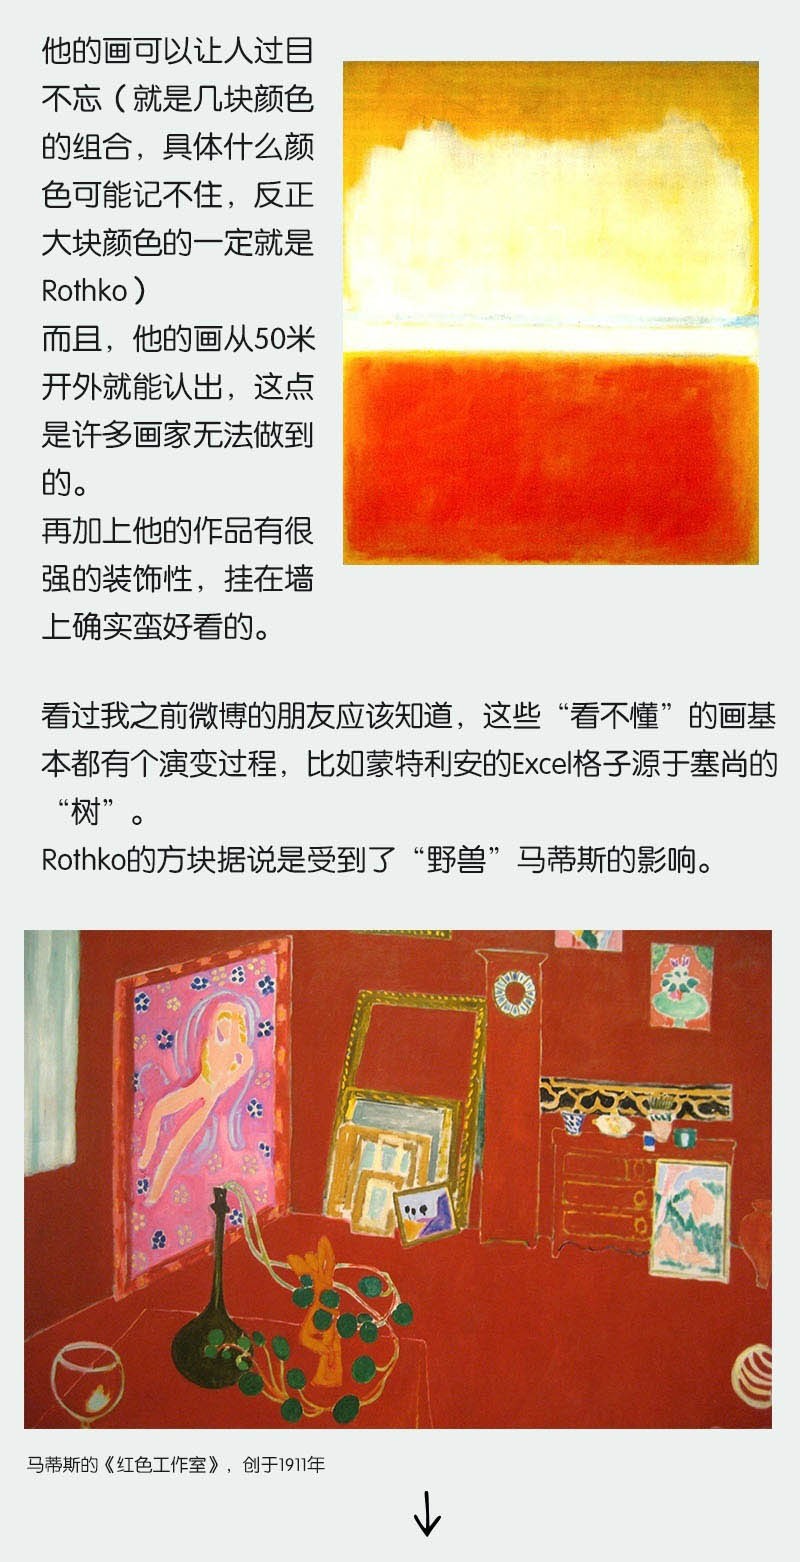 他的画可以让人过目
不忘（就是几块颜色
的组合，具体什么颜
色可能记不住，反正
大块颜色的一定就是
Rothko）
而且，他的画从50米
开外就能认出，这点
是许多画家无法做到
的。
再加上他的作品有很
强的装饰性，挂在墙
上确实蛮好看的。
看过我之前微博的朋友应该知道，这些“看不懂”的画基
本都有个演变过程，比如蒙特利安的Excel格子源于塞尚的
“树”。
Rothko的方块据说是受到了“野兽”马蒂斯的影响。
马蒂斯的《红色工作室》，创于1911年